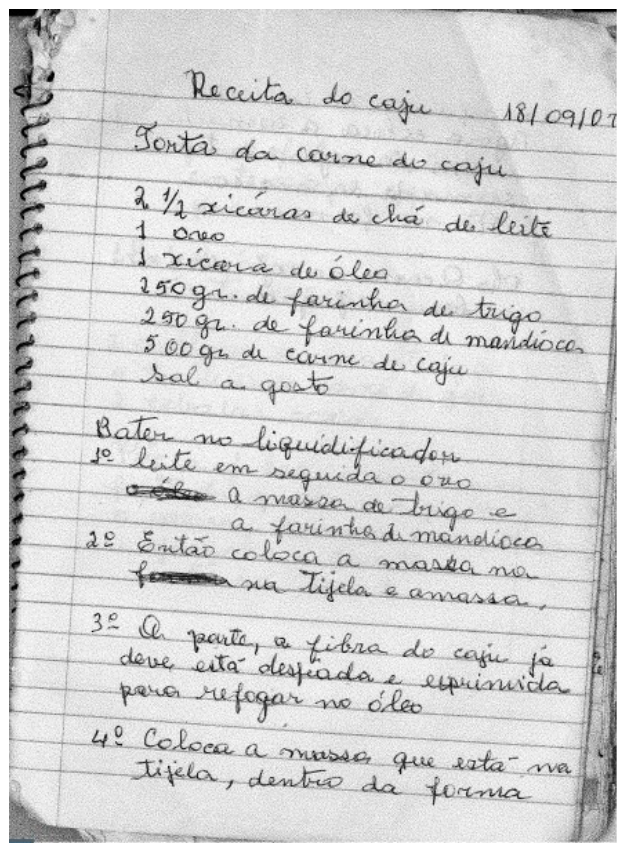 Receita do caju 18/09/07
Torta da carne do caju
2 1/2 xicáras de chá de leite
1 ovo
1 xícara de óleo
250 gr. de farinha de trigo
250 gr. de farinha de mandíoca
500 gr de carne de caju
sal a gosto
Bater no liquidificador
1º leite em seguida o ovo
a massa de trigo e
a farinha de mandíoca
2º Então coloca a massa na
na tijela e amassa,
3º A parte, a fibra do caju já
deve está desfiada e esprimida
para refogar no óleo
4º Coloca a massa que está na
tijela, dentro da forma